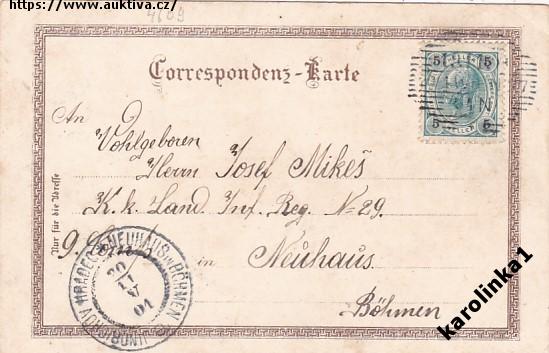 https://www.auktiva.cz/
4609
Correspondenz-Karte
5 5
HELLER
5 5
An
Wohlgeboren
Herrn Josef Mikeš
K. k. Land. Inf. Reg. No 29.
9. Comp.
in Neuhaus
Böhmen
Nur für die Adresse
NEUHAUS in BÖHMEN
JINDŘICHŮV HRADEC
karolinka1